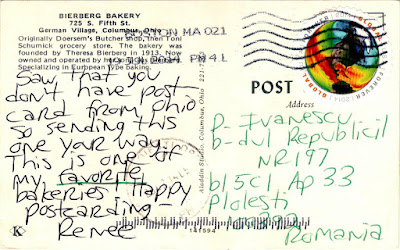 BIERBERG BAKERY
725 S. Fifth St.
German Village, Columbus, Ohio
Originally Doersem's Butcher shop, then Toni
Schumick grocery store. The bakery was
founded by Theresa Bierberg in 1913. Now
owned and operated by
Specializing in European type baking.
BOSTON MA 021
PM 4 L
Saw that you
don't have post
card from Ohio
so sending this
one your way.
This is one of
my favorite
bakeries! Happy
postcarding -
Renee
K
Aladdin Studio, Columbus, Ohio
GLOBAL
FOREVER
POST
Address
P. Ivanescu
b-dul Republicii
NR 197
bl 5C1 Ap 33
Ploiesti
Romania